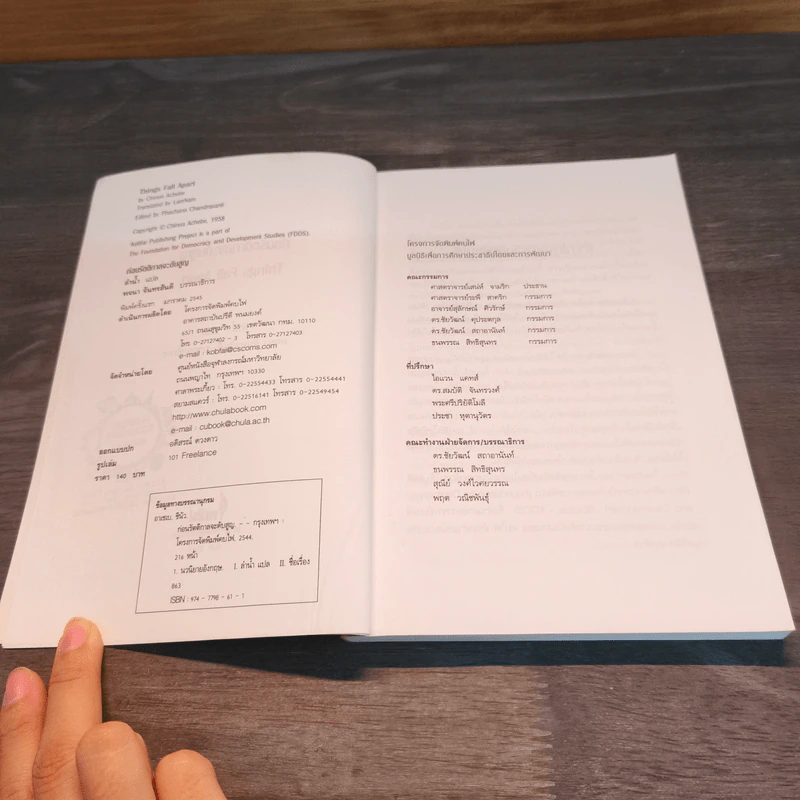 Things Fall Apart
By Chinua Achebe
Translated by Larnham
Edited by Phachana Chandnpanti
Copyright © Chinua Achebe, 1958
Kobfai Publishing Project is a part of
The Foundation for Democracy and Development Studies (FDDS).
ก่อนรัตติกาลจะดับสูญ
ลำน้ำ แปล
พจนา จันทรสันติ บรรณาธิการ
พิมพ์ครั้งแรก มกราคม 2545
ดำเนินการผลิตโดย โครงการจัดพิมพ์คบไฟ
อาคารสถาบันปรีดี พนมยงค์
65/1 ถนนสุขุมวิท 55 เขตวัฒนา กทม. 10110
โทร. 0-27127402 - 3 โทรสาร 0-27127403
e-mail : kobfai@cscoms.com
จัดจำหน่ายโดย ศูนย์หนังสือจุฬาลงกรณ์มหาวิทยาลัย
ถนนพญาไท กรุงเทพฯ 10330
ศาลาพระเกี้ยว : โทร. 0-2554433 โทรสาร 0-22554441
สยามสแควร์ : โทร. 0-22516141 โทรสาร 0-22549454
http://www.chulabook.com
e-mail : cubook@chula.ac.th
ออกแบบปก อดิสรณ์ ดวงดาว
รูปเล่ม 101 Freelance
ราคา 140 บาท
ข้อมูลทางบรรณานุกรม
อาเชเบ, ชินัว.
ก่อนรัตติกาลจะดับสูญ. - - กรุงเทพฯ :
โครงการจัดพิมพ์คบไฟ, 2544.
216 หน้า
1. นวนิยายอังกฤษ. I. ลำน้ำ แปล II. ชื่อเรื่อง
863
ISBN : 974 - 7798 - 61 - 1
โครงการจัดพิมพ์คบไฟ
มูลนิธิเพื่อการศึกษาประชาธิปไตยและการพัฒนา
คณะกรรมการ
ศาสตราจารย์เสน่ห์ จามริก ประธาน
ศาสตราจารย์ระพี สาคริก กรรมการ
อาจารย์สุลักษณ์ ศิวรักษ์ กรรมการ
ดร.ชัยวัฒน์ คุประตกุล กรรมการ
ดร.ชัยวัฒน์ สถาอานันท์ กรรมการ
ธนพรรณ สิทธิสุนทร กรรมการ
ที่ปรึกษา
ไอแวน แคทส์
ดร.สมบัติ จันทรวงศ์
พระศรีปริยัติโมลี
ประชา หุตานุวัตร
คณะทำงานฝ่ายจัดการ/บรรณาธิการ
ดร.ชัยวัฒน์ สถาอานันท์
ธนพรรณ สิทธิสุนทร
สุณีย์ วงศ์ไวศยวรรณ
พฤฒ วณิชพันธุ์